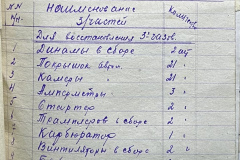 NN п/п. Наименование з/частей Количес.
Для восстановления 3х газов.
1 Динамы в сборе 2 шт
2 Покрышек авт. 21 "
3 Камеры 21 "
4 Амперметры 3 "
5 Стартер 2 "
6 Трамплеров в сборе 2 "
7 Карбюратор 1 "
8 Вентиляторы в сборе 2 "